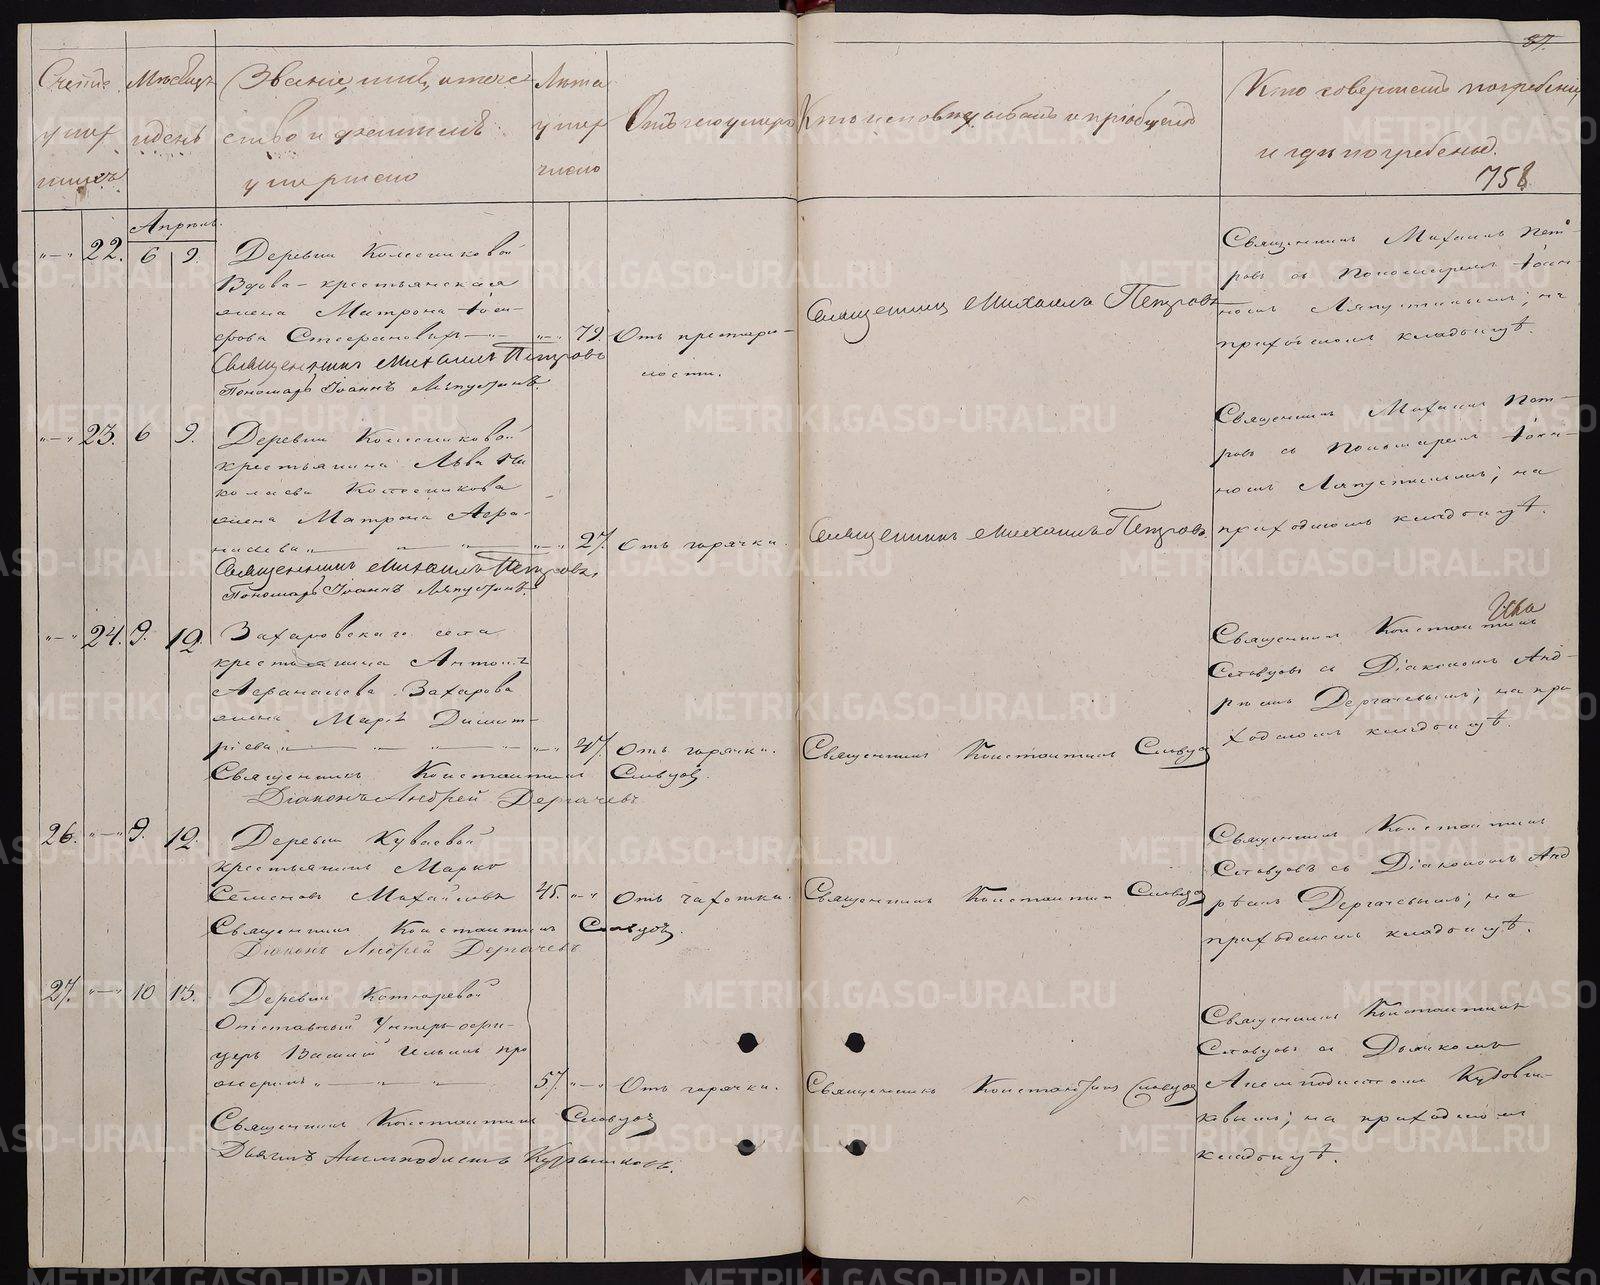 87.
Счетъ умершихъ
Мѣсяцъ и день
Званіе, имя, отечество и фамилія умершаго
Лѣта умершаго
Отъ чего умеръ
Кто исповѣдывалъ и пріобщалъ
Кто совершалъ погребеніе и гдѣ погребены.
758
Апрѣль.
22. 6 9.
Деревни Колесниковой
Вдова крестьянская
жена Матрона Іоси-
фова
79.
Отъ престаре-
лости.
Священникъ Михаилъ Петровъ
Пономарь Іоаннъ Ляпустинъ
Священникъ Михаилъ Петровъ
Священникъ Михаилъ Пет-
ровъ съ Пономаремъ Іоан-
номъ Ляпустинымъ; на
приходскомъ кладбищѣ.
23. 6 9.
Деревни Колесниковой
крестьянина Льва Ни
колаева Колесникова
жена Матрона Афа-
насьева
27.
Отъ горячки.
Священникъ Михаилъ Петровъ.
Пономарь Іоаннъ Ляпустинъ.
Священникъ Михаилъ Петровъ.
Священникъ Михаилъ Пет-
ровъ съ Пономаремъ Іоан-
номъ Ляпустинымъ; на
приходскомъ кладбищѣ.
24. 9. 12.
Захаровскаго села
крестьянина Антона
Афанасьева Захарова
жена Марія Димит-
ріева
47.
Отъ горячки.
Священникъ Константинъ Словцовъ.
Діаконъ Андрей Дергачевъ
Священникъ Константинъ Словцовъ
Священникъ Константинъ
Словцовъ съ Діакономъ Анд-
реемъ Дергачевымъ; на при
ходскомъ кладбищѣ.
26. 9. 12.
Деревни Куваевой
крестьянинъ Марко
Семеновъ Михайловъ
45.
Отъ чахотки.
Священникъ Константинъ Словцовъ.
Діаконъ Андрей Дергачевъ
Священникъ Константинъ Словцовъ
Священникъ Константинъ
Словцовъ съ Діакономъ Анд
реемъ Дергачевымъ; на
приходскомъ кладбищѣ.
27. 10 13.
Деревни
Отставный Унтеръ-офи-
церъ Василій Ильинъ
57.
Отъ горячки.
Священникъ Константинъ Словцовъ
Дьячекъ
Священникъ Константинъ Словцовъ
Священникъ Константинъ
Словцовъ съ Дьячкомъ
на приходскомъ
кладбищѣ.
METRIKI.GASO-URAL.RU